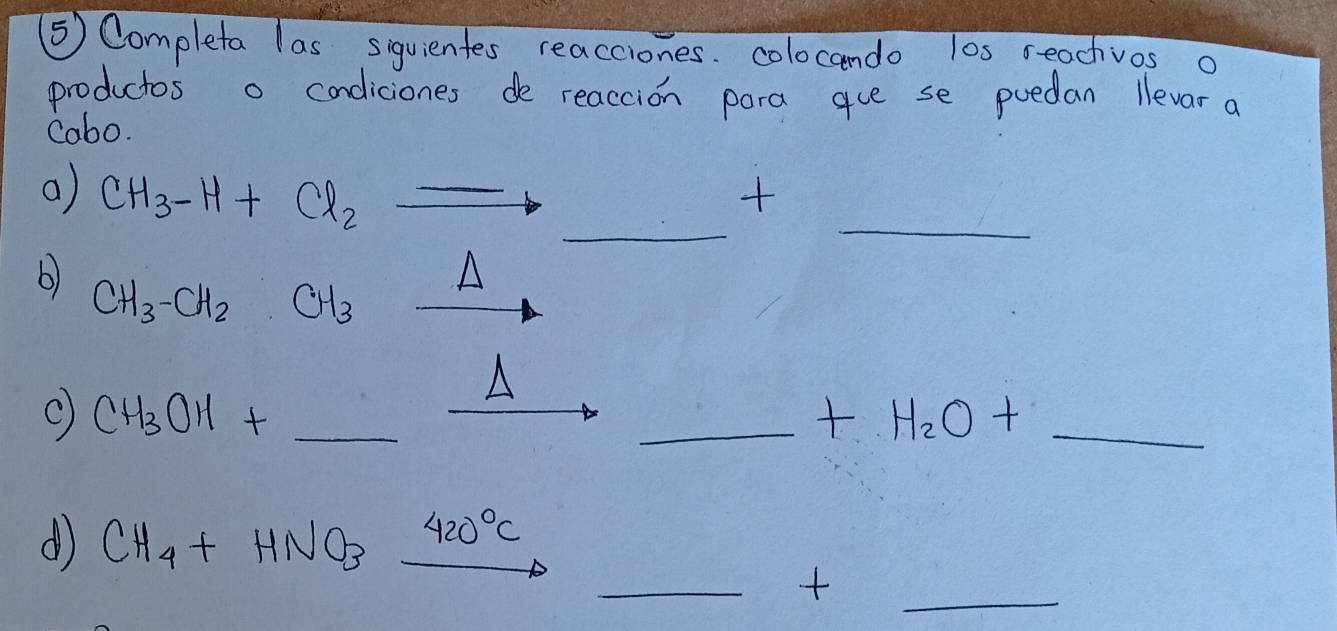 ⑤ Completa las siguientes reacciones. colocando los reactivos o
productos o condiciones de reacción para que se puedan llevar a
cabo.
a) CH₃-H + Cl₂ ⟶ ____ + ____
b) CH₃-CH₂ CH₃ —Δ→
c) CH₃OH + ____ —Δ→ ____ + H₂O + ____
d) CH₄ + HNO₃ —420°C→ ____ + ____